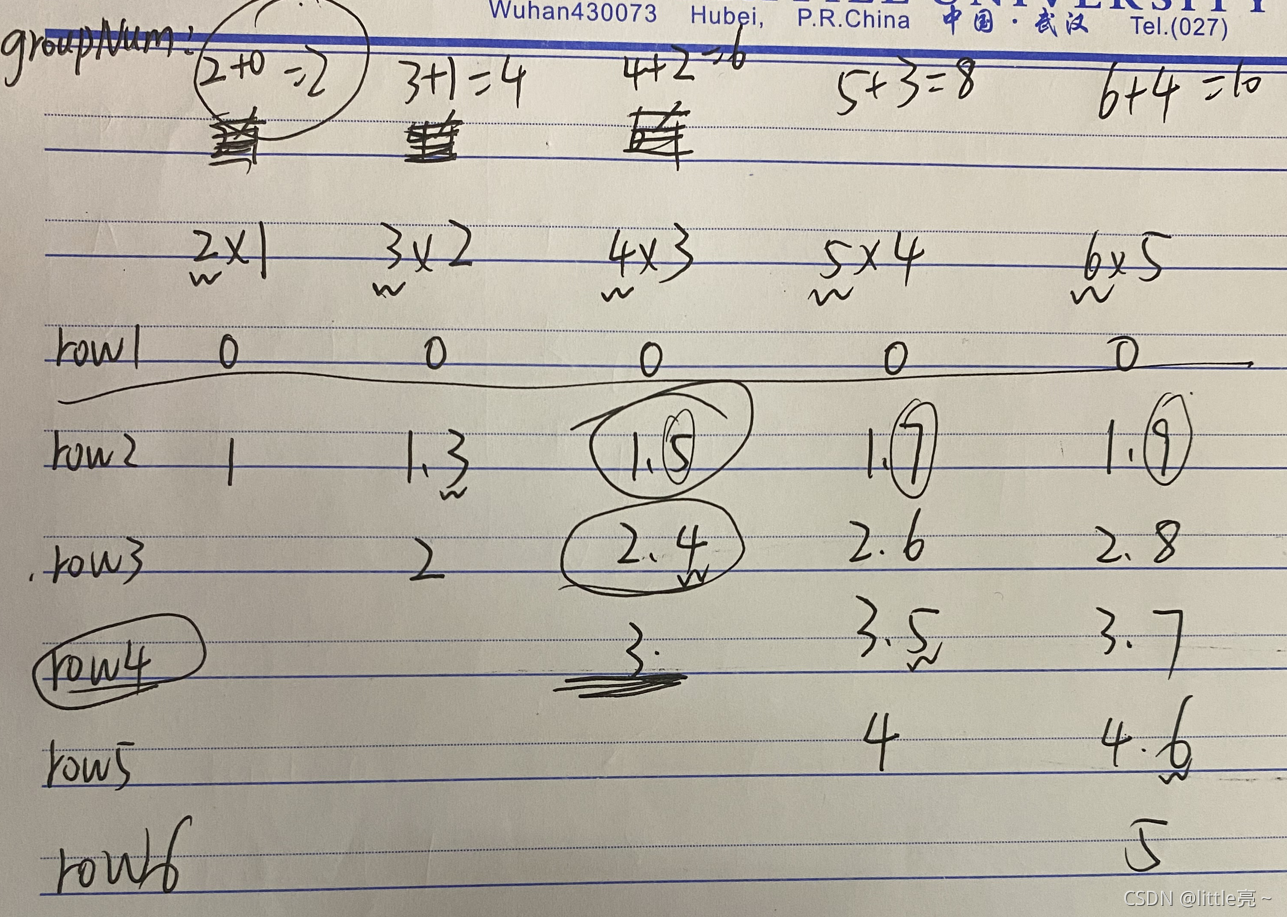 UNIVERSITY
Wuhan430073 Hubei, P.R.China 中国·武汉 Tel.(027)
groupNum: 2+0=2 3+1=4 4+2=6 5+3=8 6+4=10
2x1 3x2 4x3 5x4 6x5
row1 0 0 0 0 0
row2 1 1.3 1.5 1.7 1.9
row3 2 2.4 2.6 2.8
row4 3. 3.5 3.7
row5 4 4.6
row6 5
CSDN @little亮~